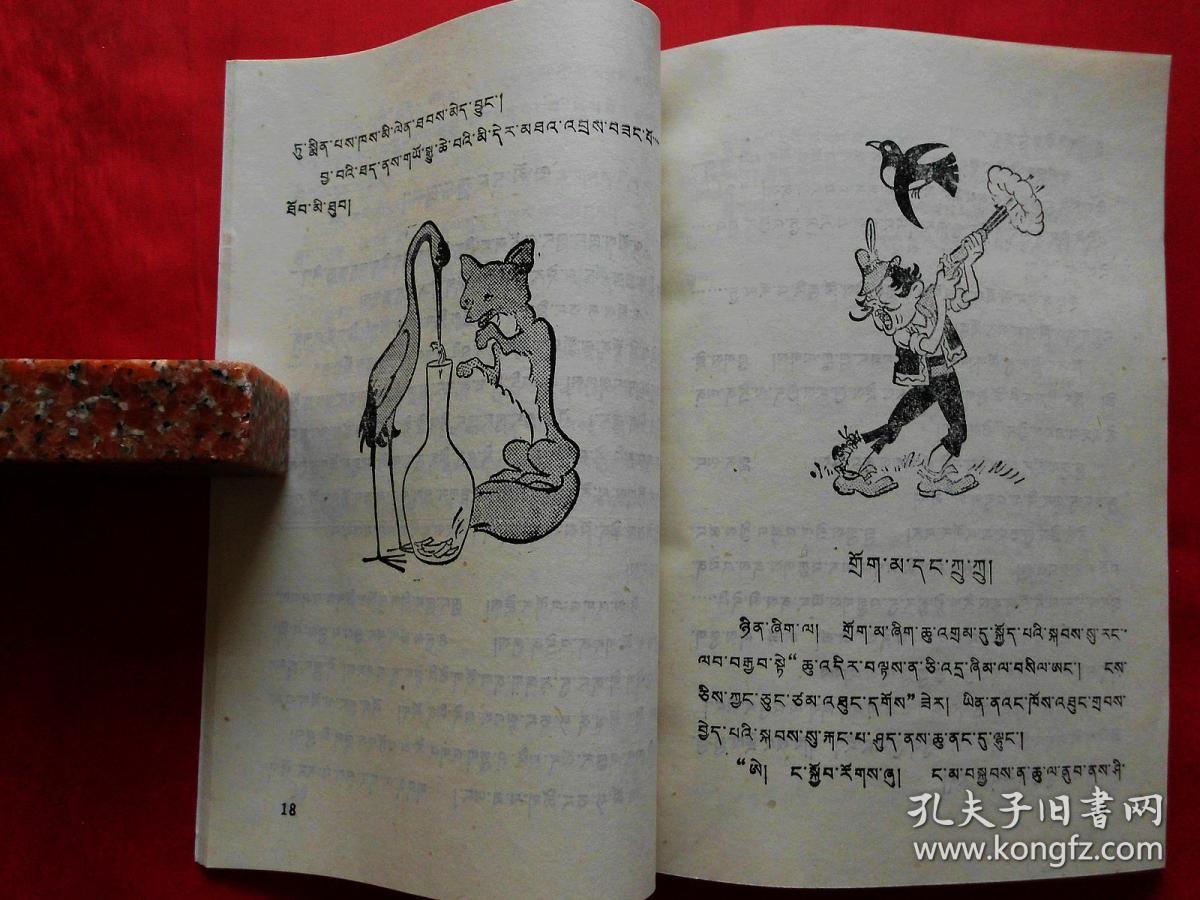 ཏུ་སྨིན་པས་ཁས་མི་ལེན་ཐབས་མེད་བྱུང་།
བྱ་བའི་ཐད་ནས་གཡོ་སྒྱུ་ཆེ་བའི་མི་དེར་མཐའ་འབྲས་བཟང་པོ་
ཐོབ་མི་ཐུབ།
18
གྲོག་མ་དང་ཀྲུ་ཀྲུ།
ཉིན་ཞིག་ལ། གྲོག་མ་ཞིག་ཆུ་འགྲམ་དུ་སྐྱོད་པའི་སྐབས་སུ་རང་
ལབ་བརྒྱབ་སྟེ“ཆུ་འདིར་བལྟས་ན་ཅི་འདྲ་ཞིམ་ལ་བསིལ་ཨང་། ངས་
ཅིས་ཀྱང་ཅུང་ཙམ་འཐུང་དགོས”ཟེར། ཡིན་ནའང་ཁོས་འཐུང་གྲབས་
བྱེད་པའི་སྐབས་སུ་རྐང་པ་ཤུད་ནས་ཆུ་ནང་དུ་ལྷུང་།
“ཨེ། ང་སྐྱོབ་རོགས་ཞུ། ང་མ་བསྐྱབས་ན་ཆུ་ལ་ནུབ་ནས་ཤི་
孔夫子旧书网
www.kongfz.com